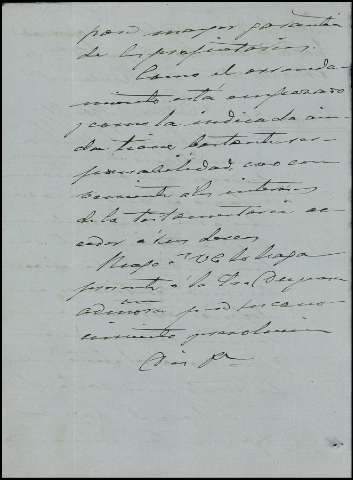 para mayor garantia
de los propietarios.
Como el arrenda-
miento está amparado
y como la indicada
tiene bastante res-
ponsabilidad, creo con-
veniente a los intereses
de la testamentaria ac-
ceder á sus deseos
Ruego á V. lo haga
presente á la Sra
para su cono-
cimiento y resolucion
Dios